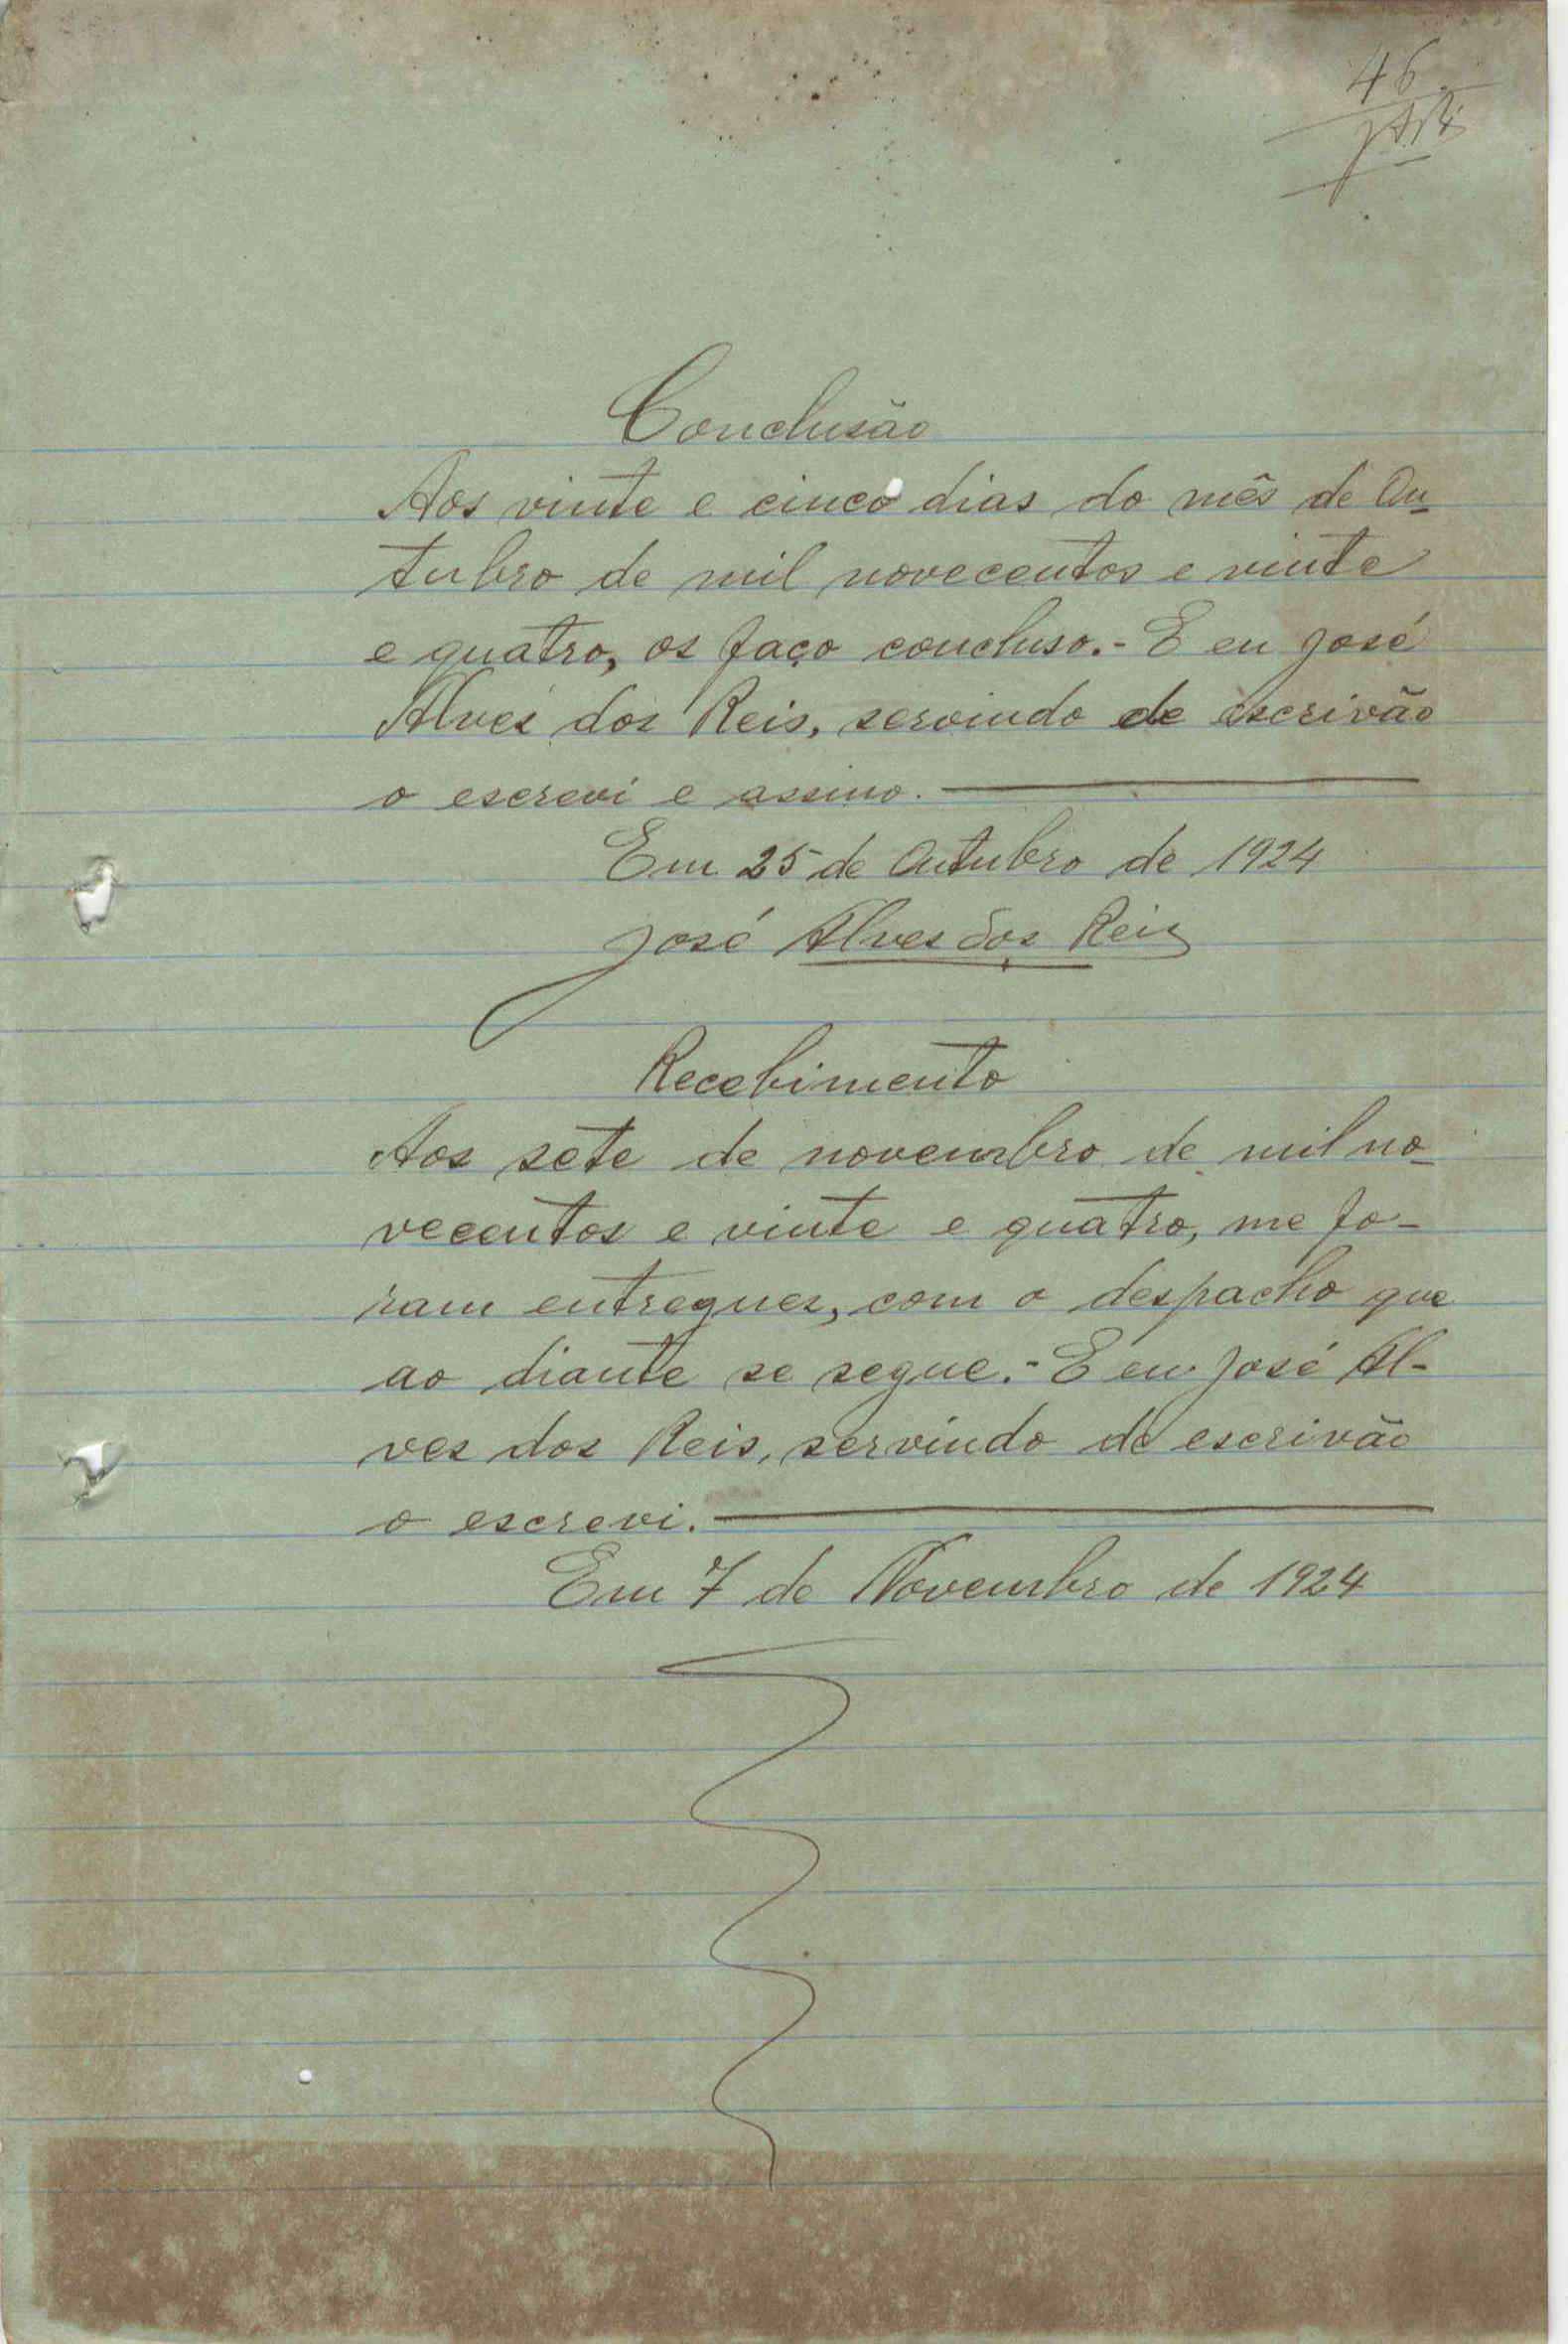 46
Conclusão
Aos vinte e cinco dias do mês de Ou-
tubro de mil novecentos e vinte
e quatro, os faço concluso.- E eu José
Alves dos Reis, servindo de escrivão
o escrevi e assino.
Em 25 de Outubro de 1924
José Alves dos Reis
Recebimento
Aos sete de novembro de mil no-
vecentos e vinte e quatro, me fo-
ram entregues, com o despacho que
ao diante se segue.- E eu José Al-
ves dos Reis, servindo de escrivão
o escrevi.
Em 7 de Novembro de 1924